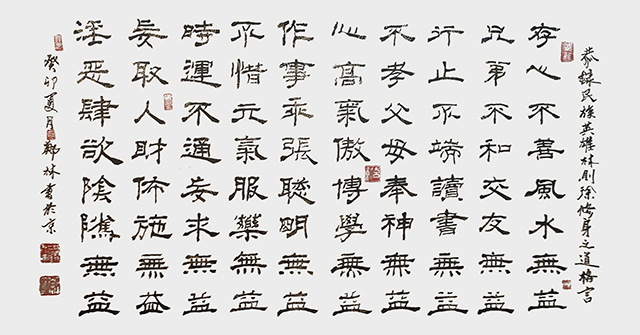 恭録民族英雄林则徐修身之道格言
存心不善風水無益
兄弟不和交友無益
行止不端讀書無益
不孝父母奉神無益
心高氣傲博學無益
作事乖張聰明無益
不惜元氣服藥無益
時運不通妄求無益
妄取人財佈施無益
淫惡肆欲陰騭無益
癸卯夏月鄭林書於京